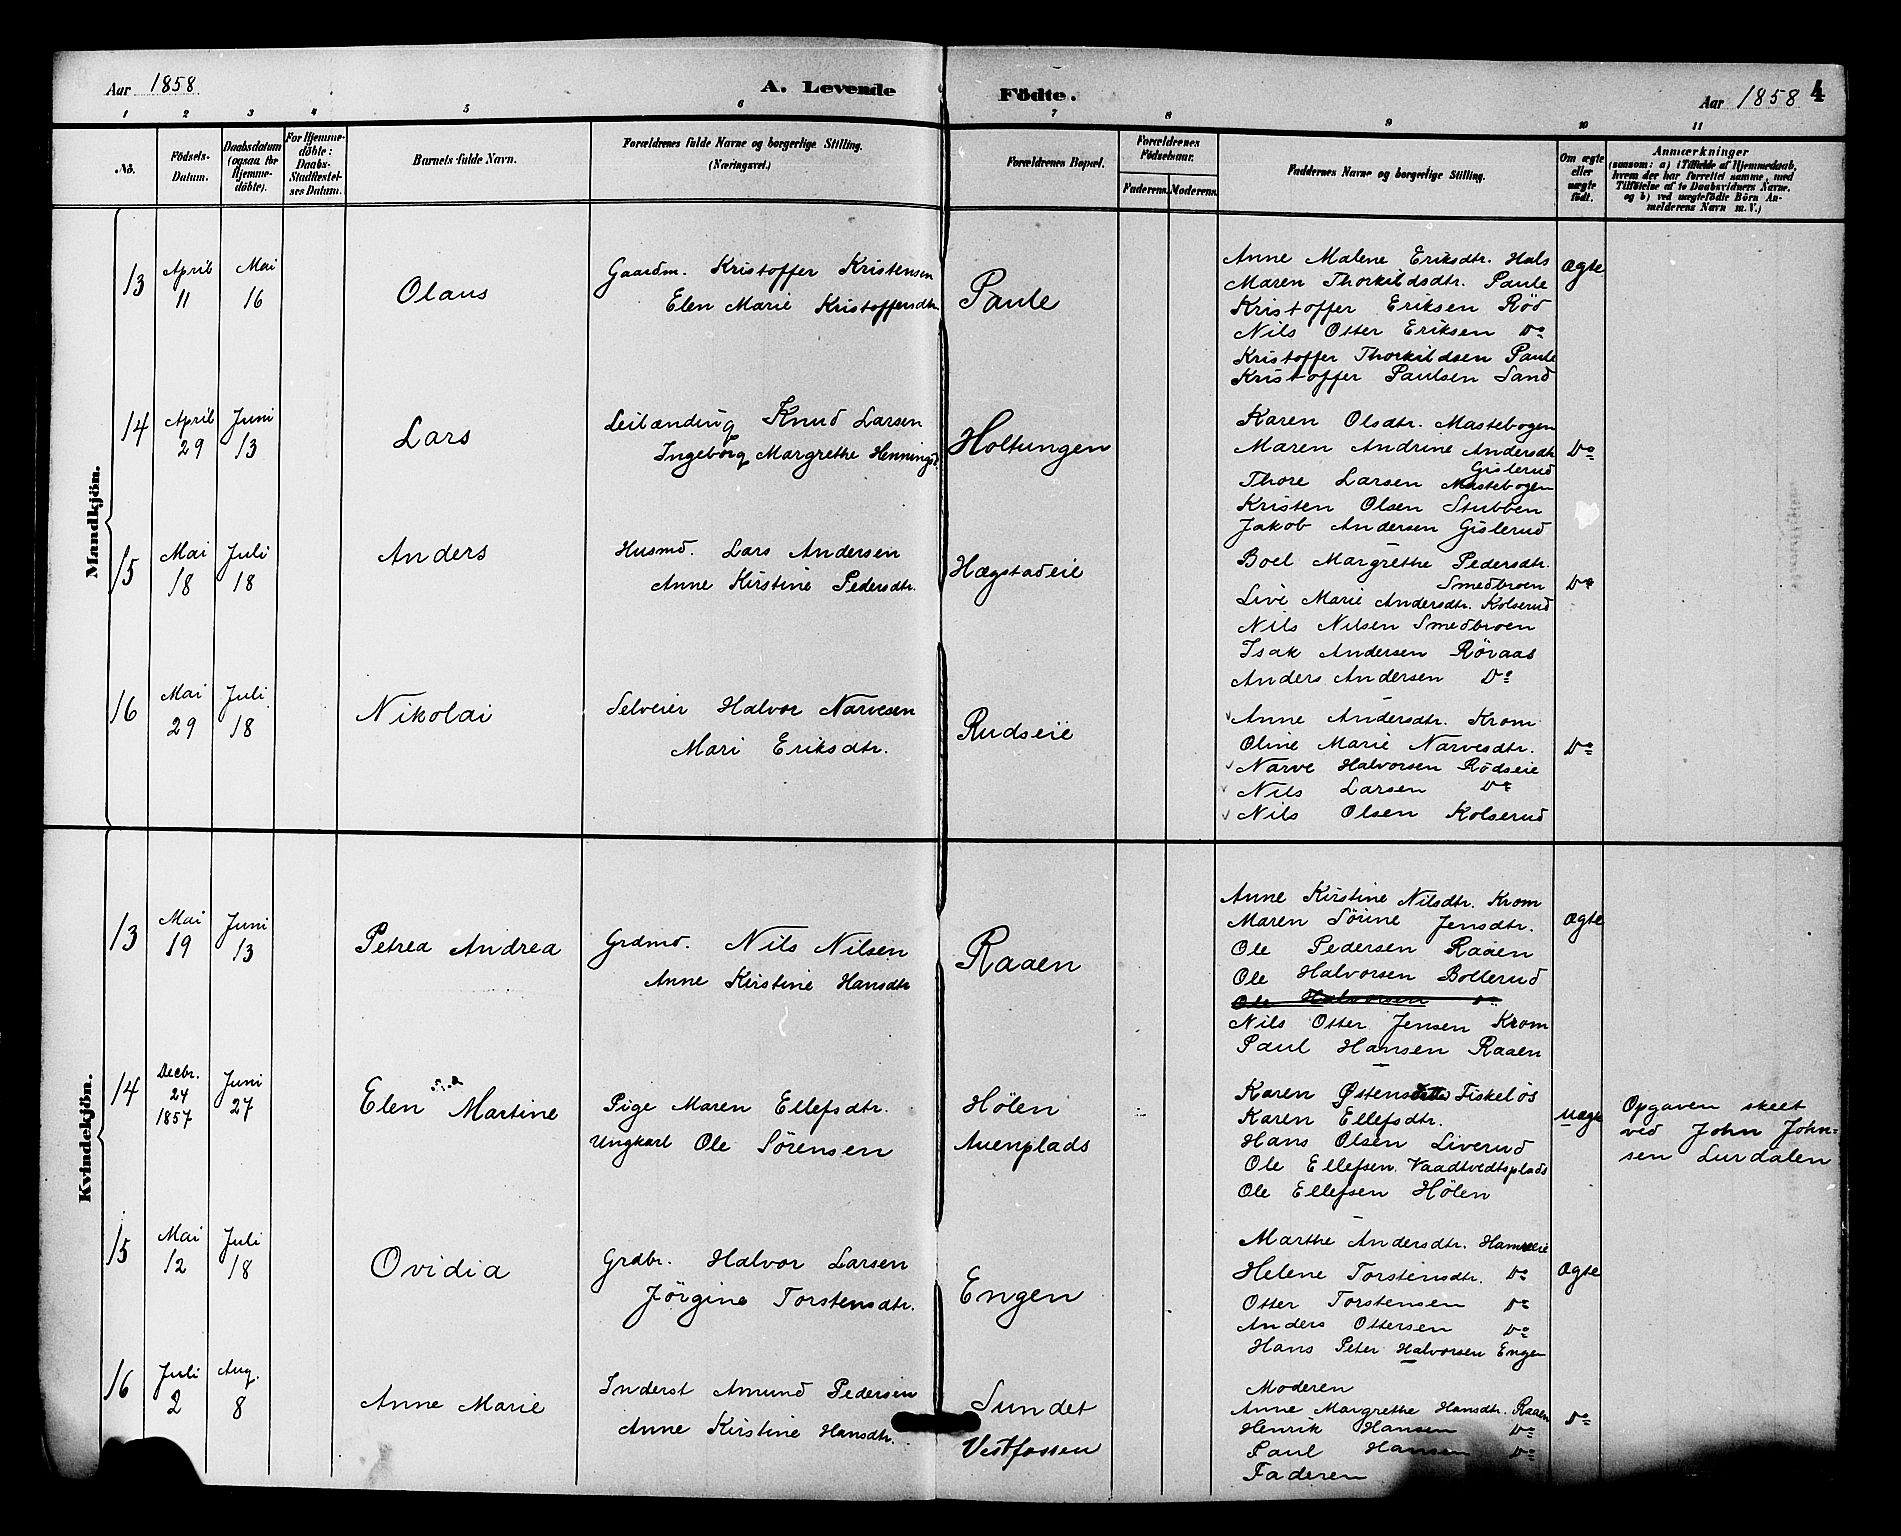 Aar 1858
A. Levende Födte.
Aar 1858
4
1 2 3 4 5 6 7 8 9 10 11
No.
Födsels-Datum.
Daabsdatum (ogsaa for Hjemme-döbte).
For Hjemme-döbte: Daabs-Stadfæstel-ses Datum.
Barnets fulde Navn.
Forældrenes fulde Navne og borgerlige Stilling. (Næringsvei.)
Forældrenes Bopæl.
Forældrenes Födselsaar.
Faderens. Moderens.
Faddernes Navne og borgerlige Stilling.
Om ægte eller uægte födt.
Anmærkninger
(saasom: a) i Tilfælde af Hjemmedaab,
hvem der har forrettet samme, med
Tilföielse af to Daabsvidners Navne,
og b) ved uægtefödte Börn An-
melderens Navn m. V.)
Mandkjön.
13
April 11
Mai 16
Olaus
Gaardm. Kristoffer Kristensen
Elen Marie Kristoffersdtr.
Paule
Anne Malene Eriksdtr. Hals
Maren Thorkildsdtr. Paule
Kristoffer Eriksen Röd
Nils Otter Eriksen Do
Kristoffer Thorkildsen Paule
Kristoffer Paulsen Sand
Ægte
14
April 29
Juni 13
Lars
Leilænding Knud Larsen
Ingeborg Margrethe Henningsd.
Holtungen
Karen Olsdtr. Mastebogen
Maren Andrine Andersdtr.
Gislerud
Thore Larsen Mastebogen
Kristen Olsen Stubben
Jakob Andersen Gislerud
Do
15
Mai 18
Juli 18
Anders
Husmd. Lars Andersen
Anne Kirstine Pedersdtr.
Hægstadeie
Boel Margrethe Pedersdtr.
Smedbroen
Live Marie Andersdtr. Kolserud
Nils Nilsen Smedbroen
Isak Andersen Röraas
Anders Andersen Do
Do
16
Mai 29
Juli 18
Nikolai
Selveier Halvor Narvesen
Mari Eriksdtr.
Rudseie
Anne Andersdtr. Krom
Oline Marie Narvesdtr.
Narve Halvorsen Rödseie
Nils Larsen Do
Nils Olsen Kolserud
Do
Kvindekjön.
13
Mai 19
Juni 13
Petrea Andrea
Grdmd. Nils Nilsen
Anne Kirstine Hansdtr
Raaen
Anne Kirstine Nilsdtr. Krom
Maren Sörine Jensdtr.
Ole Pedersen Raaen
Ole Halvorsen Bollerud
Ole Halvorsen Do
Nils Otter Jensen Krom
Paul Hansen Raaen
Ægte
14
Decbr. 24 1857
Juni 27
Elen Martine
Pige Maren Ellefsdtr.
Ungkarl Ole Sörensen
Hölen
Auenplads
Karen Östensdtr Fiskelös
Karen Ellefsdtr.
Hans Olsen Liverud
Ole Ellefsen Vaadtvedtsplads
Ole Ellefsen Hölen
Uægte
Opgaven skeet
ved John John-
sen Lurdalen
15
Mai 12
Juli 18
Ovidia
Grdbr. Halvor Larsen
Jörgine Torstensdtr.
Engen
Marthe Andersdtr.
Helene Torstensdtr. Do
Otter Torstensen Do
Anders Ottersen Do
Hans Peter Halvorsen Engen
Ægte
16
Juli 2
Aug. 8
Anne Marie
Inderst Amund Pedersen
Anne Kirstine Hansdtr.
Sundet
Vestfossen
Moderen
Anne Margrethe Hansdtr. Raaen
Henrik Hansen Do
Paul Hansen Do
Faderen
Do